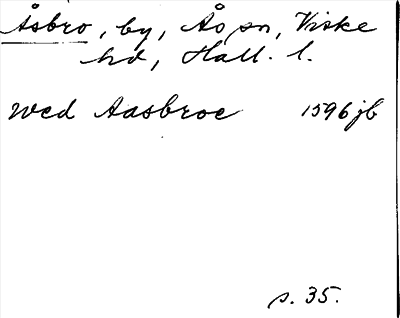 Åsbro, by, Ås sn, Viske
hd, Hall. l.
wed Aasbroe 1596 jb
s. 35.